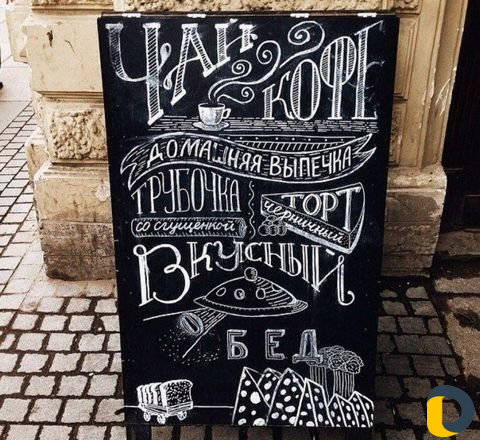 ЧАЙ
КОФЕ
ДОМАШНЯЯ ВЫПЕЧКА
ТРУБОЧКА
со сгущенкой
ТОРТ
черничный
ВКУСНЫЙ
ОБЕД